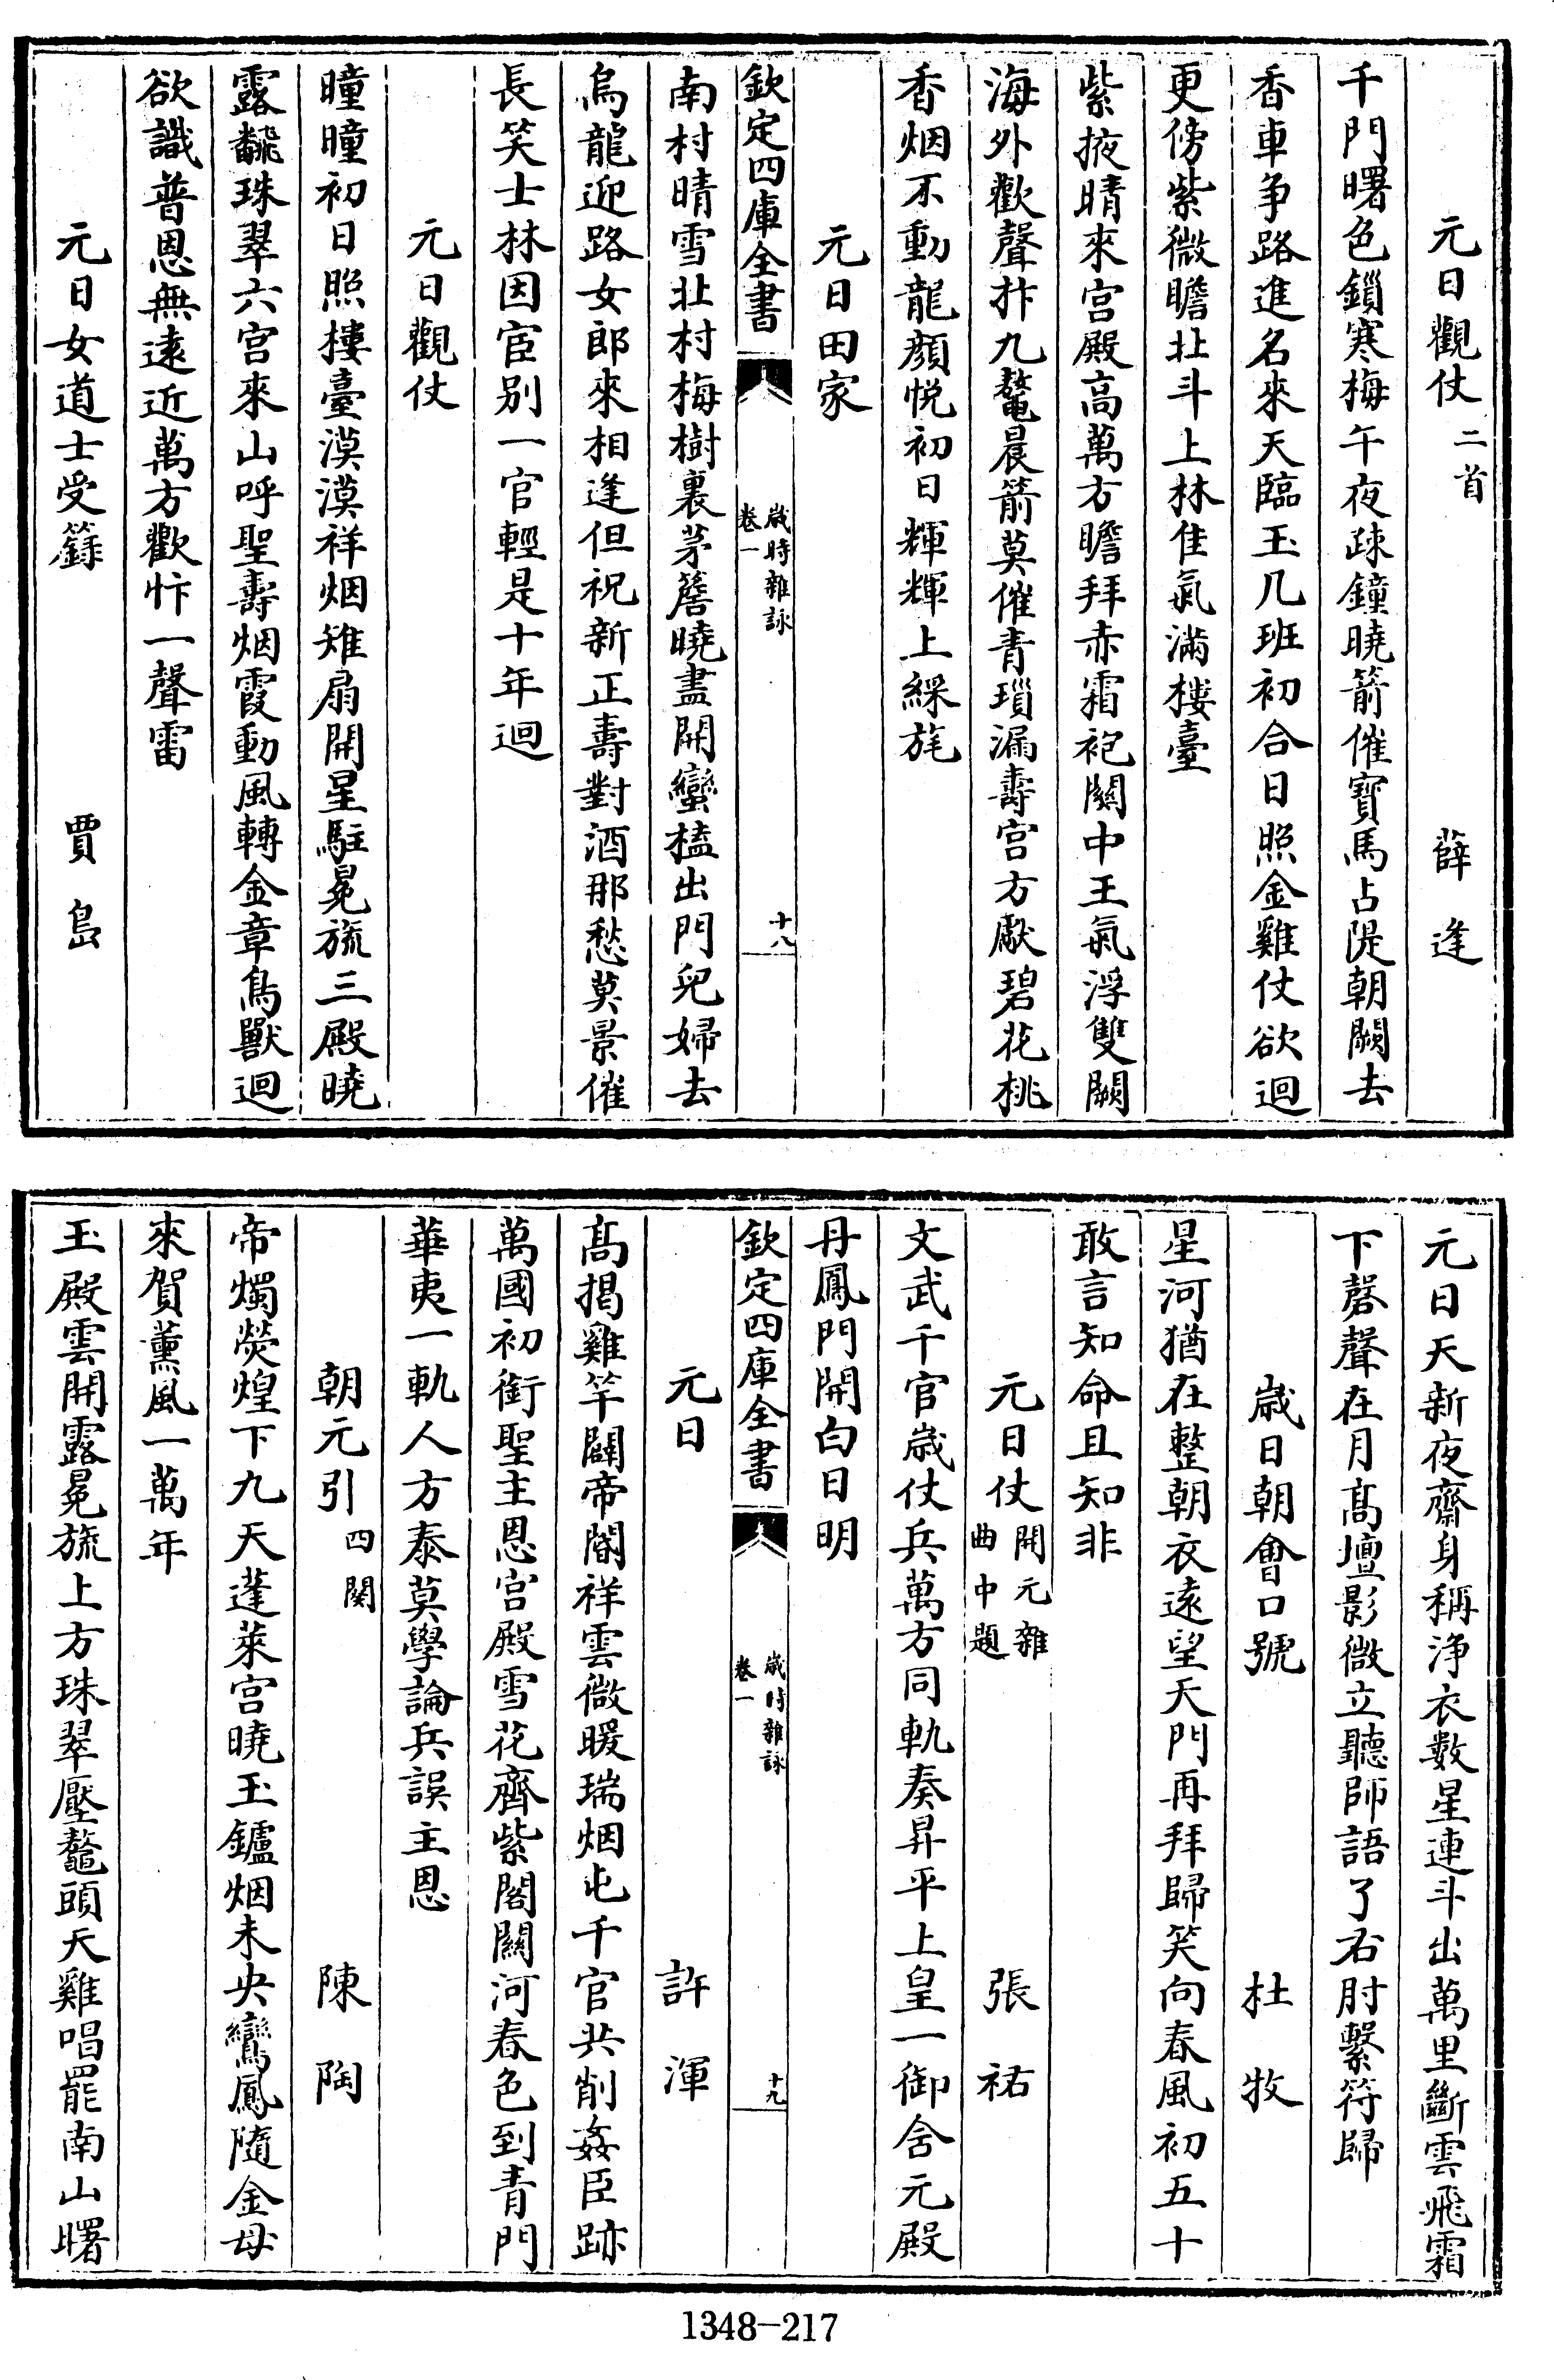 元日觀仗二首　薛逢
千門曙色鎖寒梅午夜疎鐘曉箭催寶馬占隄朝闕去
香車爭路進名來天臨玉几班初合日照金雞仗欲迴
更傍紫微瞻北斗上林佳氣滿樓臺
紫掖晴來宫殿高萬方瞻拜赤霜袍闗中王氣浮雙闕
海外歡聲抃九鼇晨箭莫催青瑣漏壽宫方獻碧花桃
香烟不動龍顔悦初日輝輝上綵旄
元日田家
欽定四庫全書
歲時雜詠
卷一
十八
南村晴雪北村梅樹裏茅簷曉盡開蠻榼出門兒婦去
烏龍迎路女郎來相逢但祝新正壽對酒那愁莫景催
長笑士林因宦别一官輕是十年迴
元日觀仗
曈曈初日照樓臺漠漠祥烟雉扇開星駐冕旒三殿曉
露飜珠翠六宫來山呼聖壽烟霞動風轉金章鳥獸迴
欲識普恩無逺近萬方歡忭一聲雷
元日女道士受籙　賈島
元日天新夜齋身稱浄衣數星連斗出萬里斷雲飛霜
下磬聲在月髙壇影微立聽師語了右肘繫符歸
歲日朝會口號　杜牧
星河猶在整朝衣逺望天門再拜歸笑向春風初五十
敢言知命且知非
元日仗開元雜曲中題　張祐
文武千官歲仗兵萬方同軌奏昇平上皇一御含元殿
丹鳳門開白日明
欽定四庫全書
歲時雜詠
卷一
十九
元日　許渾
髙揭雞竿闢帝閽祥雲微暖瑞烟屯千官共削姦臣跡
萬國初銜聖主恩宫殿雪花齊紫閣闗河春色到青門
華夷一軌人方泰莫學論兵誤主恩
朝元引四闋　陳陶
帝燭熒煌下九天蓬萊宫曉玉鑪烟未央鸞鳳隨金母
來賀薰風一萬年
玉殿雲開露冕旒上方珠翠壓鼇頭天雞唱罷南山曙
1348-217